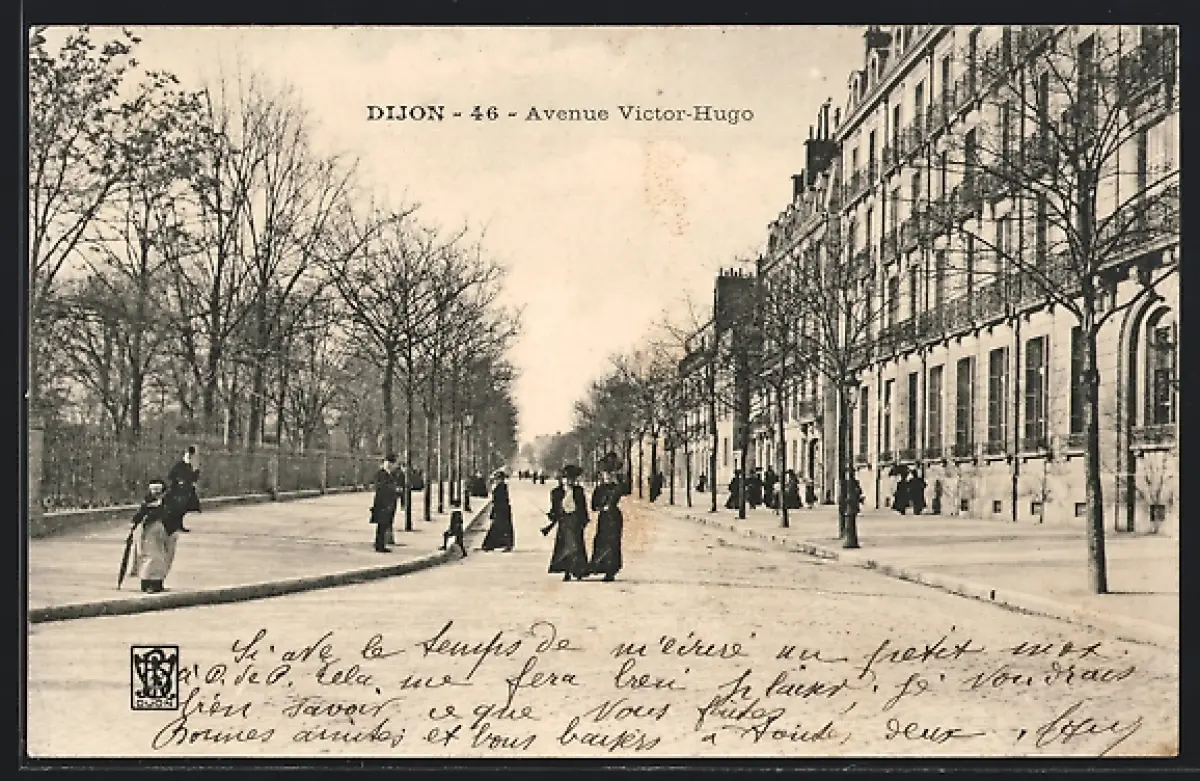 DIJON - 46 - Avenue Victor-Hugo
Si ave le temps de m'écrire un petit mot
à P. de P. Cela me fera bien plaisir, je voudrais
bien savoir ce que vous faites
Bonnes amities et bons baisers à toute deux,
DIJON